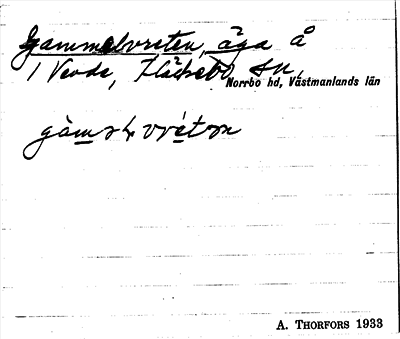 Gammelvreten, äga å
1 Vende, Fläckebo sn,
Norrbo hd, Västmanlands län
A. THORFORS 1933